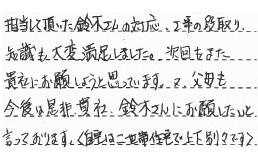 担当して頂いた鈴木さんの対応、工事の段取り、
知識も大変満足しました。次回もまた
貴社にお願しようと思っています。又、父母も
今後は是非貴社、鈴木さんにお願したいと
言っております。(自宅は二世帯住宅で上下別々です)